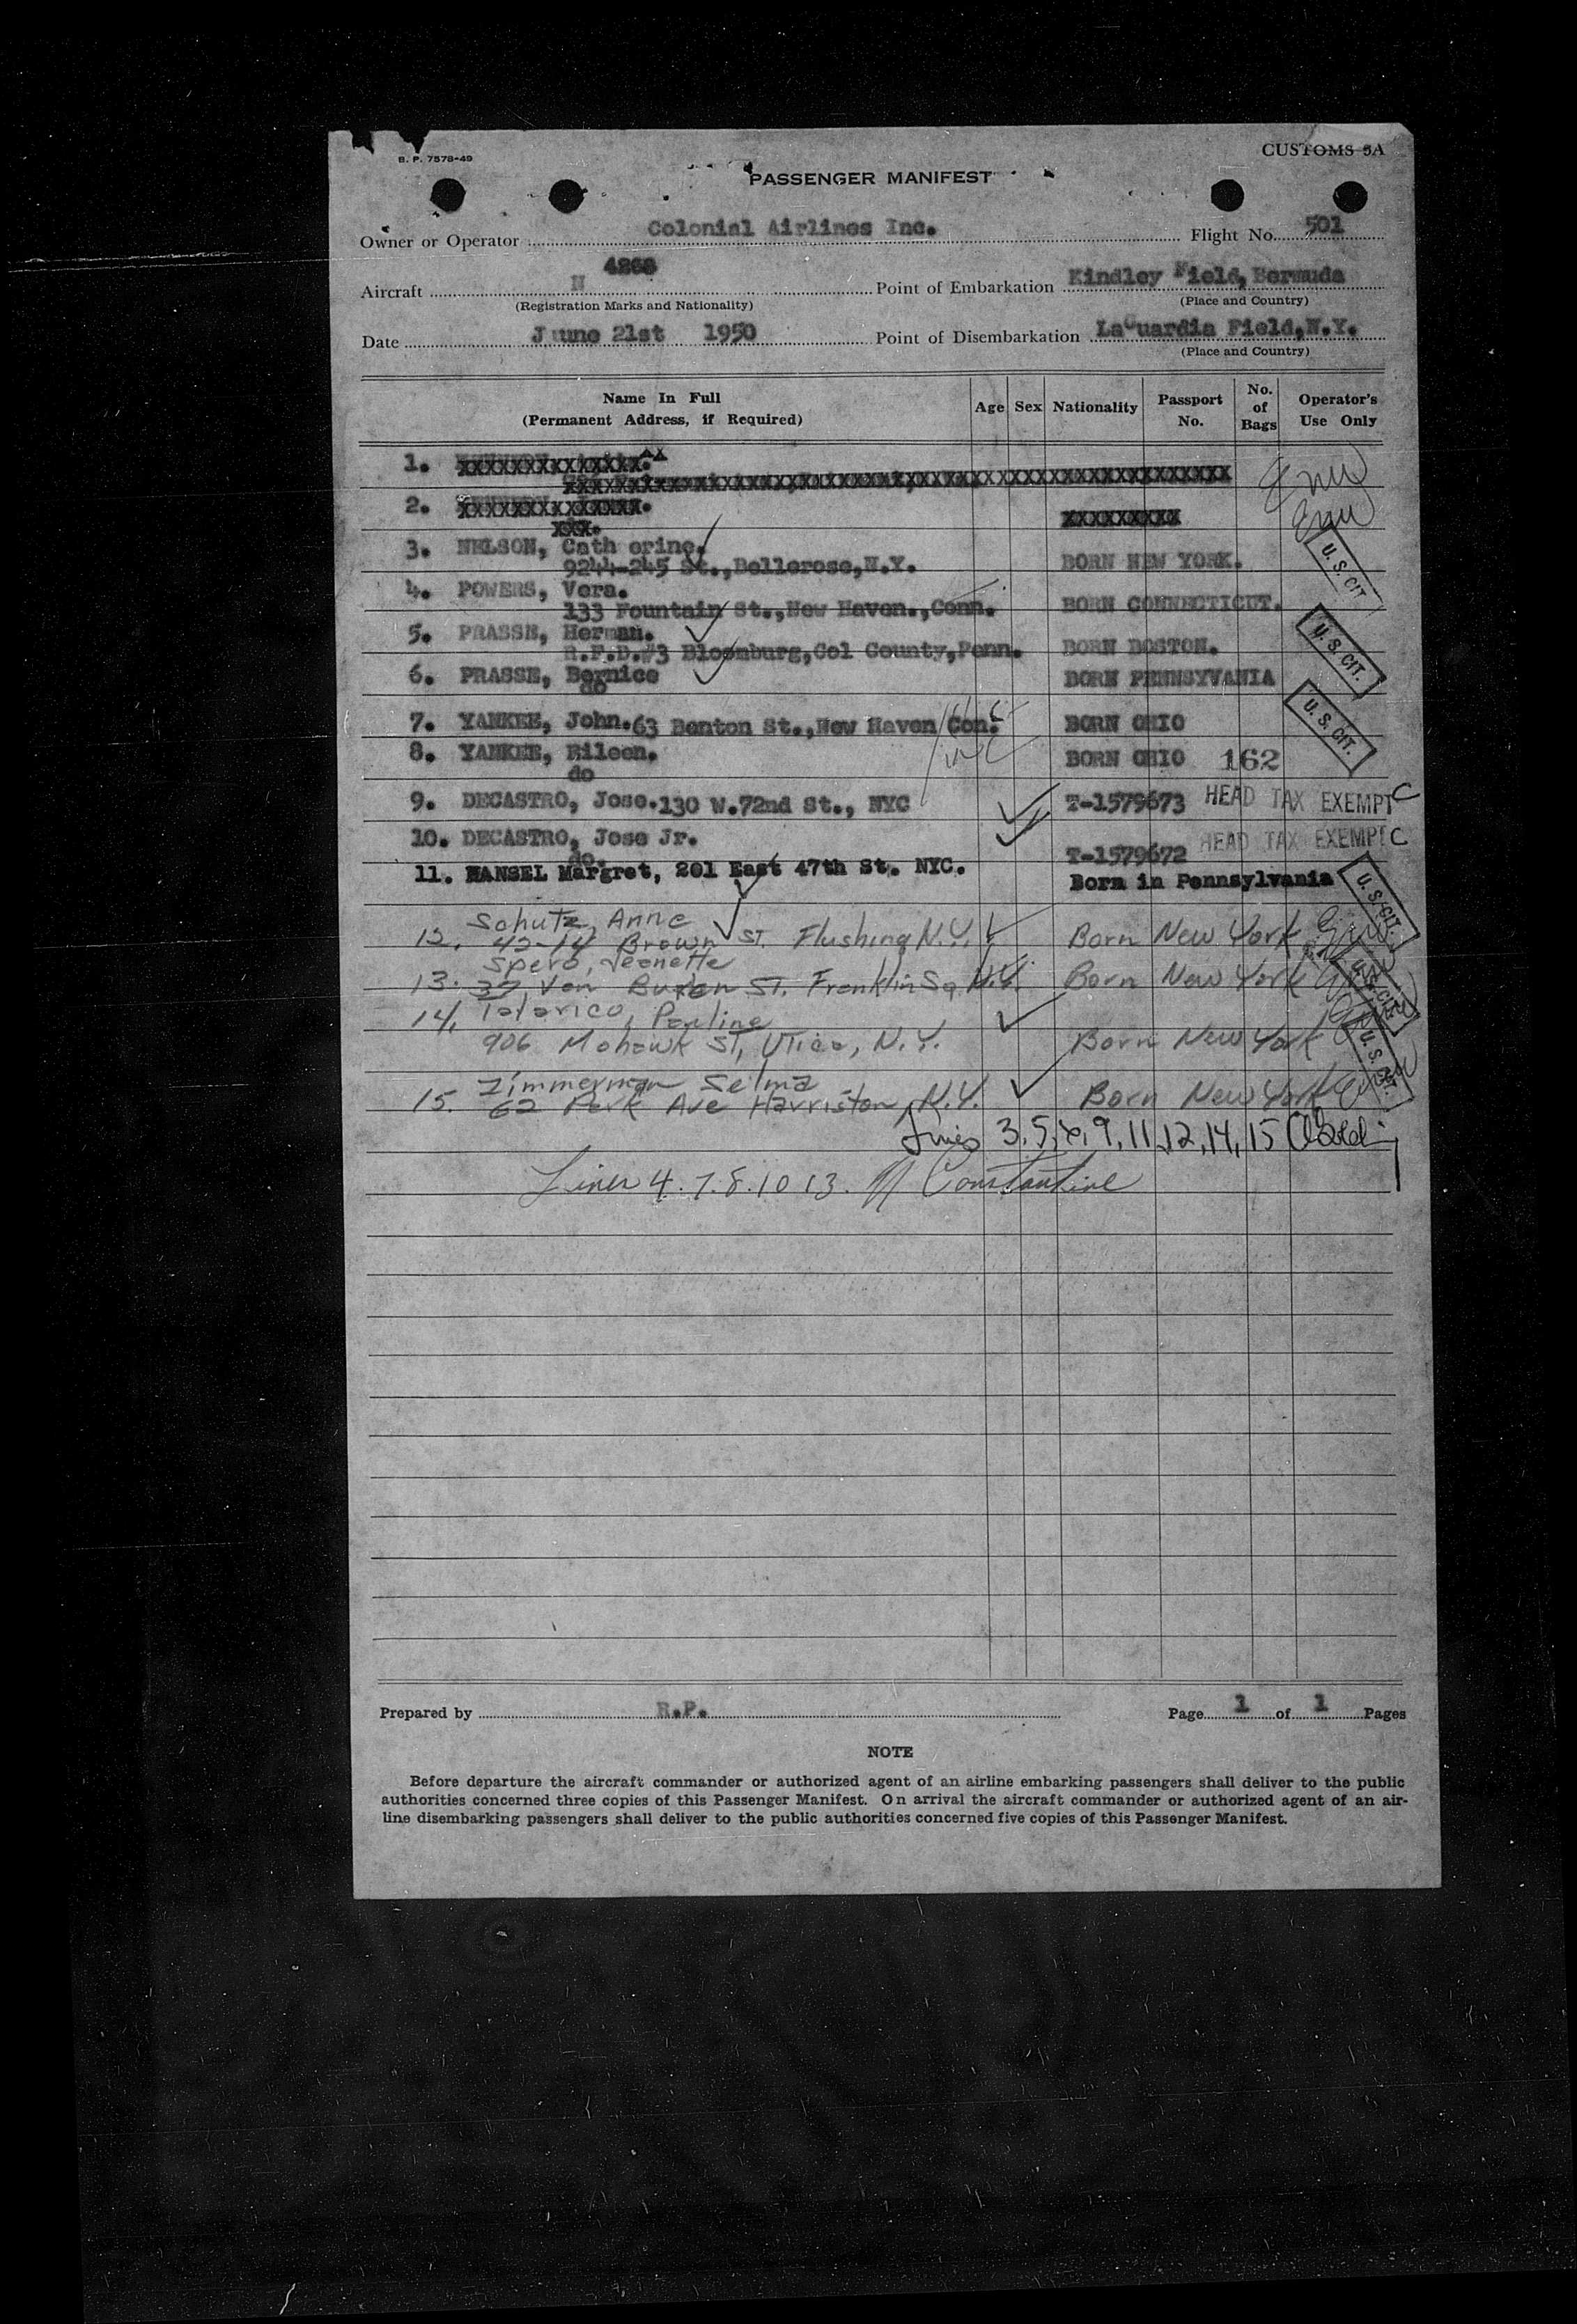 B. P. 7578-49
CUSTOMS 5A
PASSENGER MANIFEST
Owner or Operator Colonial Airlines Inc. Flight No. 501
Aircraft N 4268 Point of Embarkation Kindley Field, Bermuda
(Registration Marks and Nationality) (Place and Country)
Date J une 21st 1950 Point of Disembarkation LaGuardia Field, N.Y.
(Place and Country)
Name In Full (Permanent Address, if Required) Age Sex Nationality Passport No. No. of Bags Operator's Use Only
1.
2.
3. NELSON, Cath erine.
9244-245 St., Bellerose, N.Y. BORN NEW YORK. U. S. CIT
4. POWERS, Vera.
133 Fountain St., New Haven., Conn. BORN CONNECTICUT.
5. PRASSE, Herman.
R.F.D.#3 Bloomburg, Col County, Penn. BORN BOSTON. U. S. CIT.
6. PRASSE, Bernice BORN PENNSYVANIA
do
7. YANKEE, John. 63 Benton St., New Haven Con. BORN OHIO U. S. CIT.
8. YANKEE, Eileen. BORN OHIO 162
do
9. DECASTRO, Jose. 130 W. 72nd St., NYC T-1579673 HEAD TAX EXEMPT C
10. DECASTRO, Jose Jr. T-1579672 HEAD TAX EXEMPT C
do.
11. HANSEL Margret, 201 East 47th St. NYC. Born in Pennsylvania U. S. CIT.
Schutz, Anne
12. 42-14 Brown ST. Flushing N.Y. Born New York
Spero, Jeanette
13. 37 Van Buren ST. Franklin Sq N.Y. Born New York U. S. CIT.
14. Talarico, Pauline
906 Mohawk ST, Utica, N.Y. Born New York U. S. CIT.
Zimmerman Selma
15. 62 Park Ave Harriston, N.Y. Born New York
Lines 3, 5, 6, 9, 11, 12, 14, 15
Lines 4. 7. 8. 10 13. Constantine
Prepared by R.P. Page 1 of 1 Pages
NOTE
Before departure the aircraft commander or authorized agent of an airline embarking passengers shall deliver to the public
authorities concerned three copies of this Passenger Manifest. On arrival the aircraft commander or authorized agent of an air-
line disembarking passengers shall deliver to the public authorities concerned five copies of this Passenger Manifest.